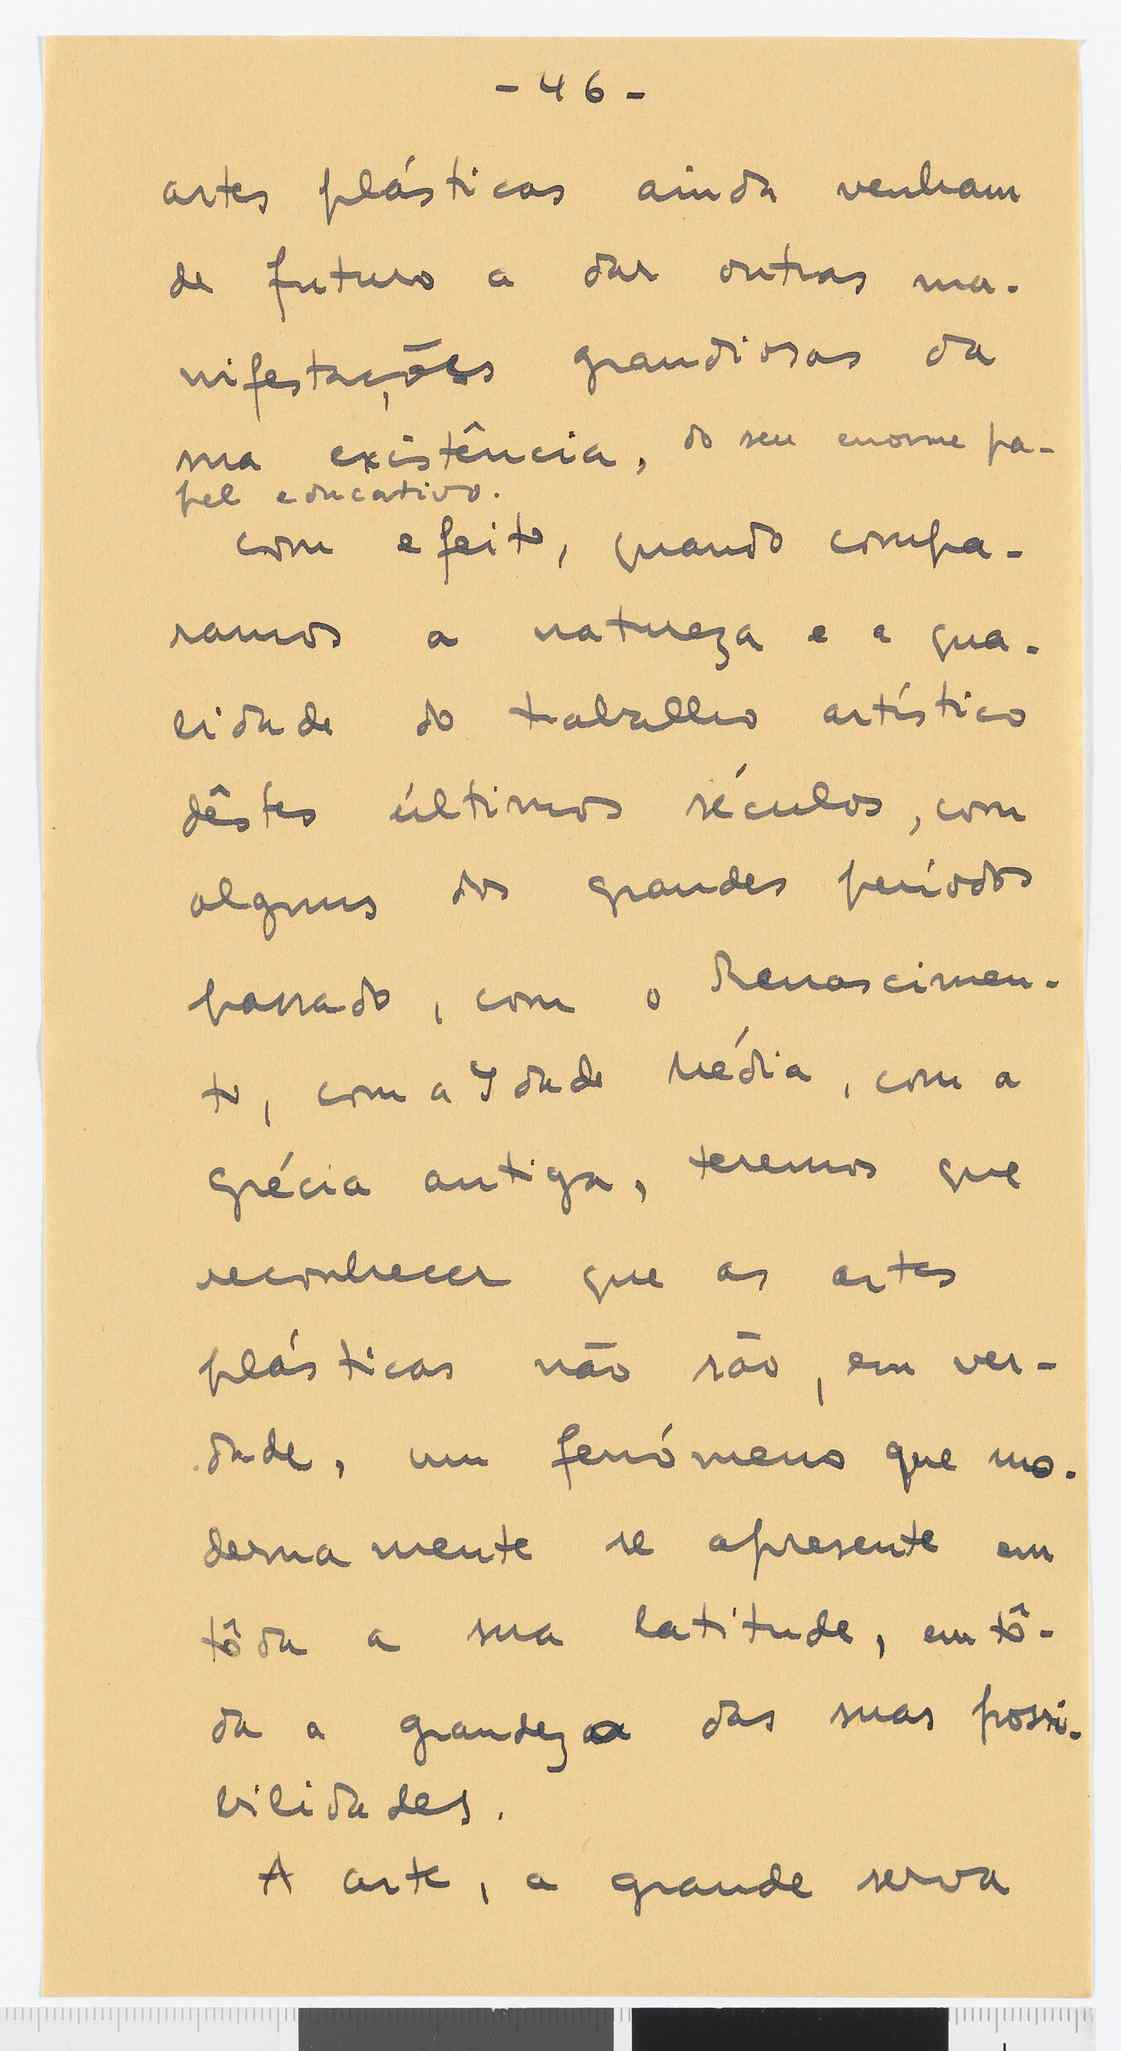 - 46 -
artes plásticas ainda venham
de futuro a dar outras ma-
nifestações grandiosas da
sua existência, do seu enorme pa-
pel educativo.
Com efeito, quando compa-
ramos a natureza e a qua-
lidade do trabalho artístico
dêstes últimos séculos, com
alguns dos grandes períodos
passado, com o Renascimen-
to, com a Idade Média, com a
Grécia antiga, teremos que
reconhecer que as artes
plásticas não são, em ver-
dade, um fenómeno que mo-
dernamente se apresente em
tôda a sua latitude, em tô-
da a grandeza das suas possi-
bilidades.
A arte, a grande serva